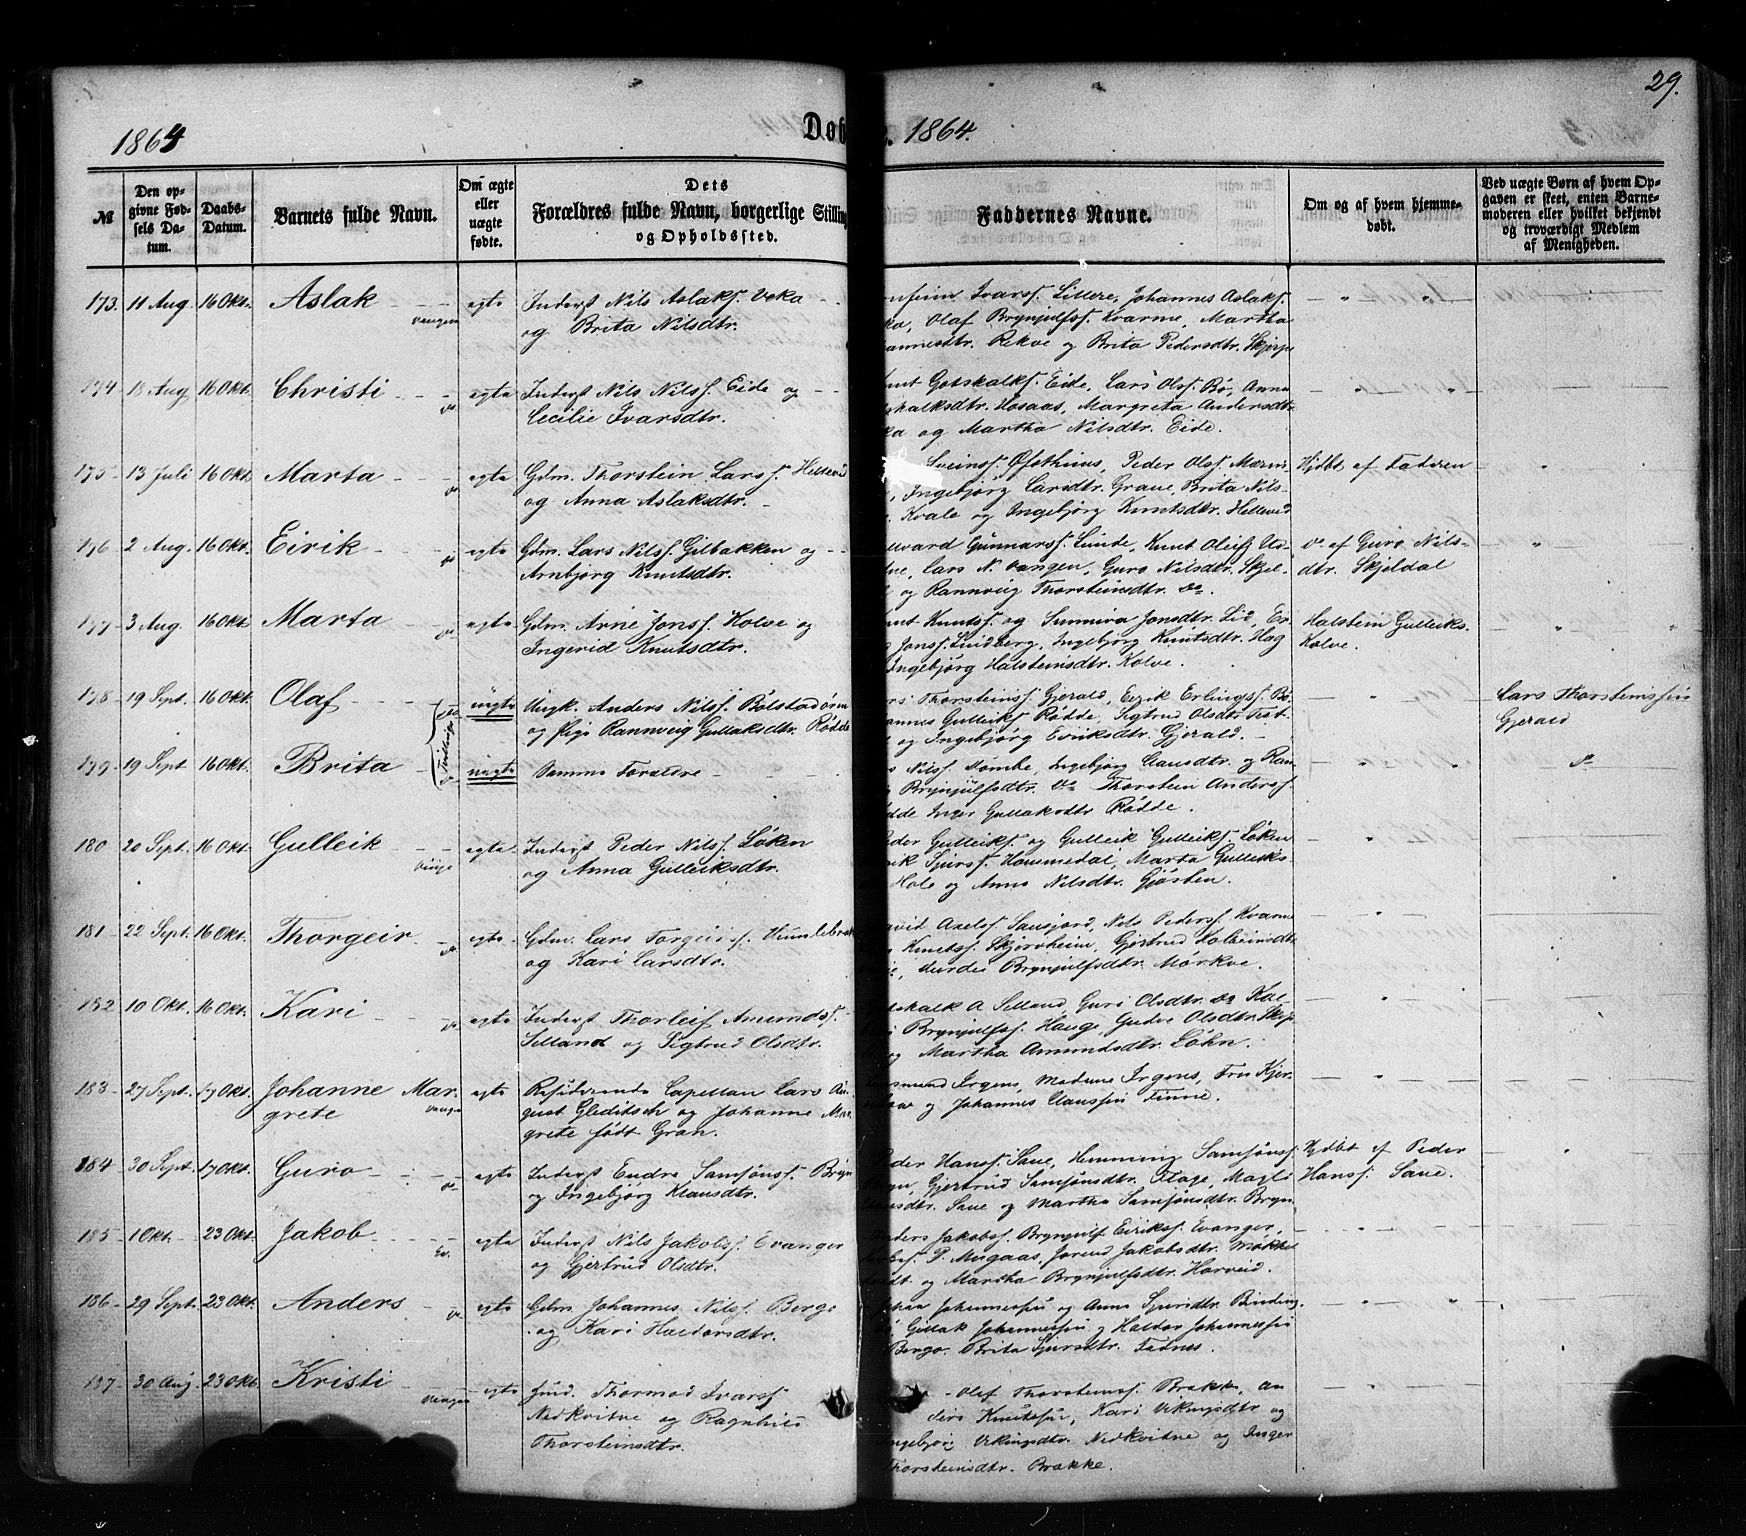 29.
1864
Døb
1864.
№
Den opgivne Fødsels Datum.
Daabs-Datum.
Barnets fulde Navn.
Om ægte eller uægte fødte.
Dets Forældres fulde Navn, borgerlige Stilling og Opholdssted.
Faddernes Navne.
Om og af hvem hjemmedøbt.
Ved uægte Børn af hvem Opgaven er skeet, enten Barnemoderen eller hvilket bekjendt og troværdigt Medlem af Menigheden.
173. 11 Aug. 16 Okt. Aslak Vangen egte Inderst Nils Aslaks. Veka
og Brita Nilsdtr.
Ivars. Lillere, Johannes Aslaks.
Olaf Brynjulfss. Kvarme, Martha
Rekve og Brita Pedersdtr. Skjerpe
174 18 Aug. 16 Okt. Christi do egte Inderst Nils Nilss. Eide og
Cecilie Ivarsdtr.
Gotskalks. Eide, Lars Olss. Bø, Anna
Hosaas, Margreta Andersdtr
og Martha Nilsdtr. Eide.
175 13 Juli 16 Okt. Marta do egte Gdm. Thorstein Larss. Hellevid
og Anna Aslaksdtr.
Sveinss. Øfsthuus, Peder Olss.
Ingebjörg Larsdtr. Graue, Brita Nils-
Kvale og Ingebjörg Knutsdtr. Hellevid
Hjdbt af Faderen
176 2 Aug. 16 Okt. Eirik do egte Gdm. Lars Nilss. Gilbakken og
Arnbjörg Knutsdtr.
Gunnarss. Lunde, Knut
Lars N. Vangen, Guro Nilsdtr. Skjel-
og Rannveig Thorsteinsdtr. do.
do af Guro Nils-
dtr. Skjeldal
177 3 Aug. 16 Okt. Marta do egte Gdm. Arne Jonss. Kolve og
Ingerid Knutsdtr.
Knutss. og Sunniva Jonsdtr. Lid,
Jonss. Lindberg, Ingebjörg Knutsdtr. Hag
Ingebjörg Halsteinsdtr. Kolve.
Halstein Gulleiks.
Kolve.
178 19 Sept. 16 Okt. Olaf do Tvillinger uegte Ungk. Anders Nilss. Bolstadören
og Pige Rannveig Gullaksdtr. Rödde
Thorsteinss. Gjerald, Eirik Erlingss. Bø
Gulleiks. Rödde, Sigtrud Olsdtr
og Ingebjörg Eiriksdtr. Gjerald.
Lars Thorsteinssøn
Gjerald
179 19 Sept 16 Okt. Brita do uegte Samme Forældre
Nilss. Ingebjörg Clausdtr. og Ran-
Brynjulfsdtr. do Thorstein Anderss.
Inger Gullaksdtr Rödde.
do
180 20 Sept. 16 Okt. Gulleik Vinje egte Inderst Peder Nilss. Løken
og Anna Gulleiksdtr.
Gulleiks. og Gulleik Gulleiks. Løken
Sjurss. Hommedal, Marta Gulleiks-
Hole og Anna Nilsdtr. Gjøsten.
181 22 Sept. 16 Okt. Thorgeir do egte Gdm. Lars Torgeirs. Humlebrek
og Kari Larsdtr.
Axelss. Nils Pederss. Kvarme
Knutss. Skjervheim, Gjertrud Kolbeinsdtr
Brynjulfsdtr. Mørkve.
182 10 Okt. 16 Okt. Kari do egte Inderst Thorleif Amunds.
Selland og Sigtrud Olsdtr.
A Selland, Guri Olsdtr. do
Brynjulfss. Hauge, Olsdtr.
og Martha Amundsdtr. Løhn.
183 27 Sept. 17 Okt. Johanne Mar-
grete Vangen egte Residerende Capellan Lars Au-
gust Gleditsch og Johanne Mar-
grete født Gran.
Irgens, Madame Irgens, Frk Kjer-
og Johannes Claussøn Finne.
184 30 Sept. 17 Okt. Guro do egte Inderst Endre Samsöns. Bryn
og Ingebjörg Klausdtr.
Hanss. Saue, Hemming Samsönss.
Gjertrud Samsönsdtr. Flage, Magli
Saue og Martha Samsönsdtr. Bryn.
Hjdbt af Peder
Hanss. Saue.
185 1 Okt. 23 Okt. Jakob Ev. egte Inderst Nils Jakobss. Evanger
og Gjertrud Olsdtr.
Jakobss. Brynjulf Eirikss. Evanger,
P. Mugaas, Jorend Jakobsdtr.
og Martha Brynjulfsdtr. Horveid.
186 29 Sept. 23 Okt. Anders do egte Gdm. Johannes Nilss. Berge
og Kari Haldorsdtr.
Johannessøn og Anna Sjursdtr.
Gullak Johannessøn og Haldor Johannessøn
Berge. Brita Sjursdtr. Fadnes.
187 30 Aug. 23 Okt. Kristi Vangen egte Ind. Thormod Ivarss
Nedkvitne og Ragnhild
Thorsteinsdtr.
Olaf Thorsteinss. Brakke, An-
ders Knutssøn, Kari Vikingsdtr og
Ingebjörg Vikingsdtr. Nedkvitne og Inger
Thorsteinsdtr. Brakke.